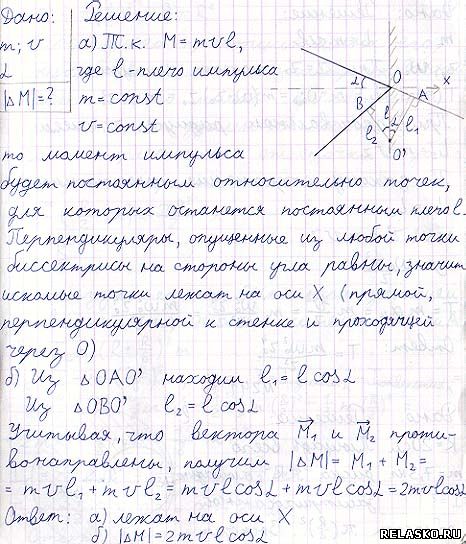 Дано: Решение:
m; v а) Т.к. M = mvl,
α где l - плечо импулька
|ΔM|=? m = const
v = const
α O X
B A
l₂ l α l₁
O'
то момент импульса
будет постоянным относительно точек,
для которых останется постоянным плечо l.
Перпендикуляры, опущенные из любой точки
биссектрисы на стороны угла равны, значит
искомые точки лежат на оси X (прямой,
перпендикулярной к стенке и проходящей
через O)
б) Из ΔOAO' находим l₁ = l cosα
Из ΔOBO' l₂ = l cosα
Учитывая, что вектора M⃗₁ и M⃗₂ проти-
вонаправлены, получим |ΔM| = M₁ + M₂ =
= mvl₁ + mvl₂ = mvl cosα + mvl cosα = 2mvl cosα
Ответ: а) лежат на оси X
б) |ΔM| = 2mvl cosα
RELASKO.RU